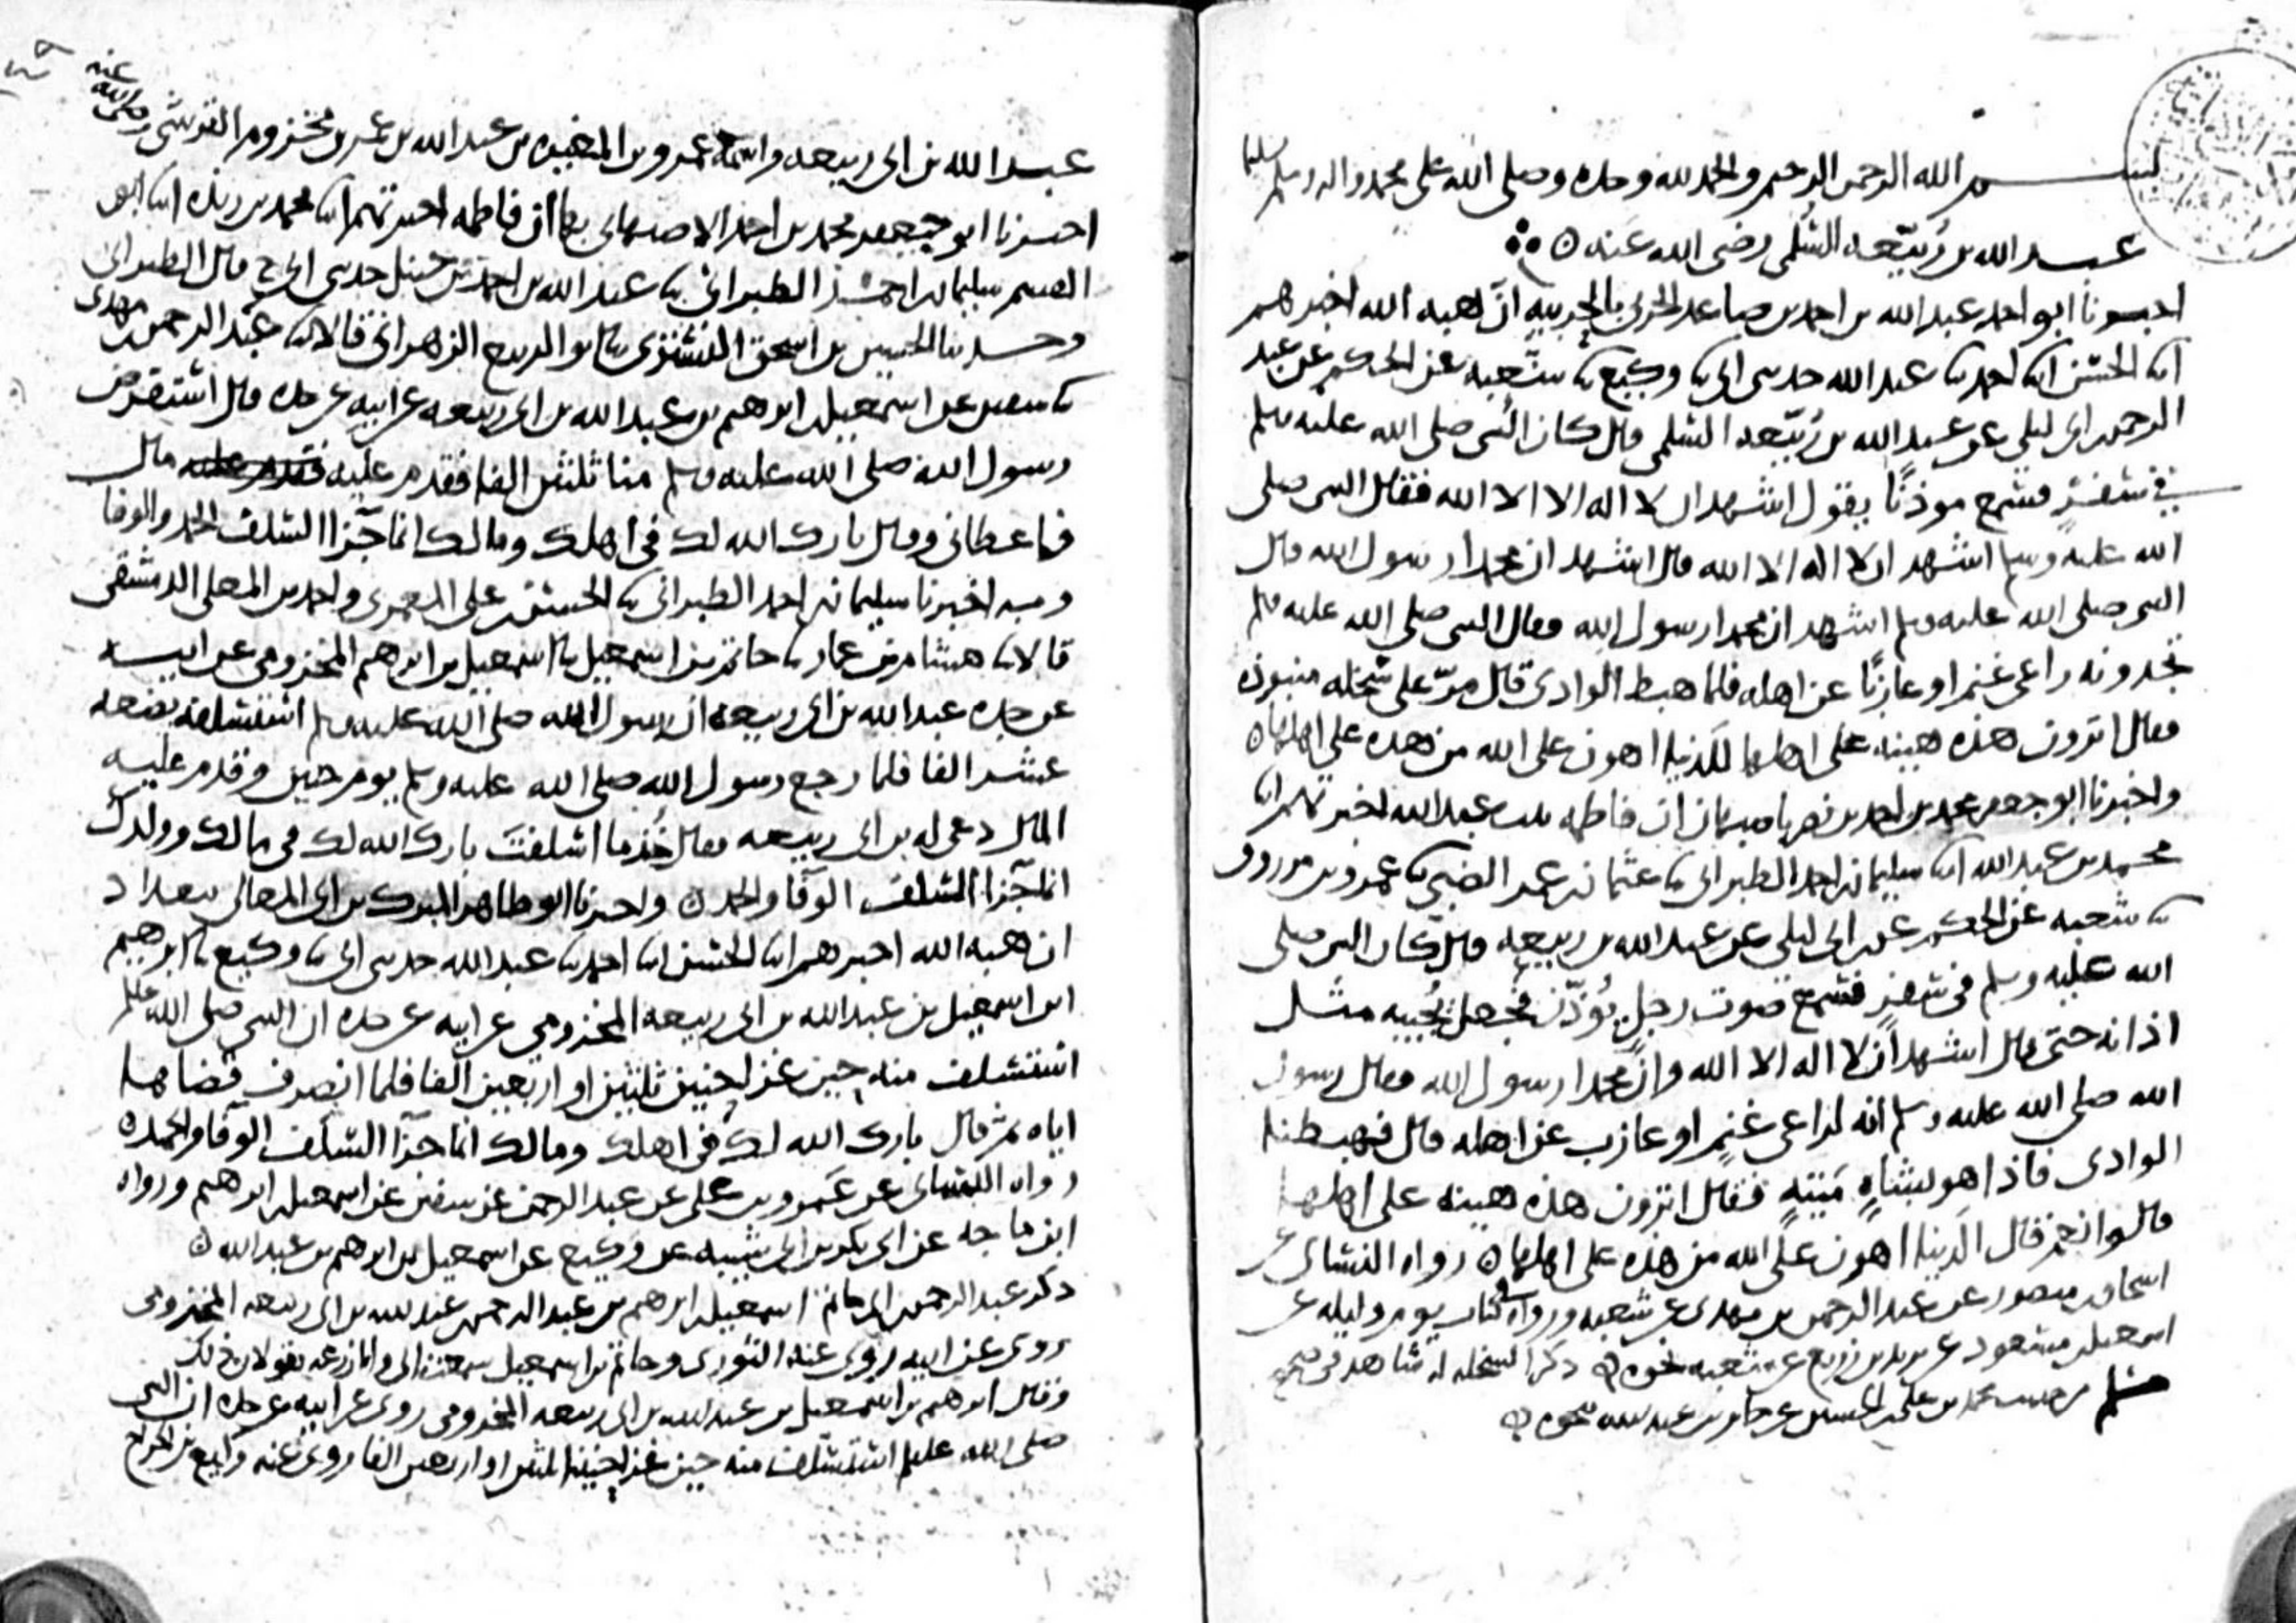 بسم الله الرحمن الرحيم والحمد لله وحده وصلى الله على محمد واله وسلم تسليما
عبد الله بن ربيعه السلمى رضى الله عنه
اخبرنا ابو احمد عبد الله بن احمد بن صاعد الحربى بالحربيه ان هبه الله اخبرهم
ابنا الحسن ابنا احمد ثنا عبد الله حدثنى ابى ثنا وكيع ثنا شعبه عن الحكم عن عبد
الرحمن بن ابى ليلى عن عبد الله بن ربيعه السلمى قال كان النبى صلى الله عليه وسلم
فى سفر فسمع موذنا يقول اشهد ان لا اله الا الله فقال النبى صلى
الله عليه وسلم اشهد ان لا اله الا الله قال اشهد ان محمدا رسول الله قال
النبى صلى الله عليه وسلم اشهد ان محمدا رسول الله وقال النبى صلى الله عليه وسلم
تجدونه راعى غنم او عازبا عن اهله فلما هبط الوادى قال مر على سخله منبوذه
فقال اترون هذه هينه على اهلها للدنيا اهون على الله من هذه على اهلها
واخبرنا ابو جعفر محمد بن احمد بن نصر باصبهان ان فاطمه بنت عبد الله اخبرتهم ابنا
محمد بن عبد الله ابنا سليمان بن احمد الطبرانى ثنا عثمان بن عمر الضبى ثنا عمرو بن مرزوق
ثنا شعبه عن الحكم عن ابن ابى ليلى عن عبد الله بن ربيعه قال كان النبى صلى
الله عليه وسلم فى سفر فسمع صوت رجل يؤذن فجعل يجيبه مثل
اذانه حتى قال اشهد ان لا اله الا الله وان محمدا رسول الله فقال رسول
الله صلى الله عليه وسلم انه لراعى غنم او عازب عن اهله قال فهبطنا
الوادى فاذا هو بشاه ميته فقال اترون هذه هينه على اهلها
قالوا نعم قال الدنيا اهون على الله من هذه على اهلها رواه النسائى عن
اسحاق بن منصور عن عبد الرحمن بن مهدى عن شعبه ورواه فى كتاب يوم وليله عن
اسمعيل بن مسعود عن يزيد بن زريع عن شعبه نحوه ذكر السخله له شاهد فى صحيح
مسلم من حديث محمد بن على بن الحسين عن جابر بن عبد الله نحوه
عبد الله بن ابى ربيعه واسمه عمرو بن المغيره بن عبد الله بن عمر بن مخزوم القرشى رضى الله عنه
اخبرنا ابو جعفر محمد بن احمد الاصبهانى بها ان فاطمه اخبرتهم ابنا محمد بن ريذه ابنا ابو
القسم سليمان بن احمد الطبرانى ثنا عبد الله بن احمد بن حنبل حدثنى ابى ح قال الطبرانى
وحدثنا الحسين بن اسحق التسترى ثنا ابو الربيع الزهرانى قالا ثنا عبد الرحمن بن مهدى
ثنا سفين عن اسمعيل بن ابرهيم بن عبد الله بن ابى ربيعه عن ابيه عن جده قال استقرض
رسول الله صلى الله عليه وسلم منا ثلثين الفا فقدم عليه قال
فاعطانى وقال بارك الله لك فى اهلك ومالك انما جزا السلف الحمد والوفا
وبه اخبرنا سليمان بن احمد الطبرانى ثنا الحسن بن على المعمرى واحمد بن المعلى الدمشقى
قالا ثنا هشام بن عمار ثنا حاتم بن اسمعيل ثنا اسمعيل بن ابرهيم المخزومى عن ابيه
عن جده عبد الله بن ابى ربيعه ان رسول الله صلى الله عليه وسلم استسلفه بضعه
عشر الفا فلما رجع رسول الله صلى الله عليه وسلم يوم حنين وقدم عليه
المال دعى له بن ابى ربيعه فقال خذ ما اسلفت بارك الله لك فى مالك وولدك
انما جزا السلف الوفا والحمد واخبرنا ابو طاهر المبرك بن ابى المعالى ببغداد
ان هبه الله اخبرهم ابنا الحسن ابنا احمد ثنا عبد الله حدثنى ابى ثنا وكيع ثنا ابرهيم
ابن اسمعيل بن عبد الله بن ابى ربيعه المخزومى عن ابيه عن جده ان النبى صلى الله عليه وسلم
استسلف منه حين غزا حنين ثلثين او اربعين الفا فلما انصرف قضاها
اياه ثم قال بارك الله لك فى اهلك ومالك انما جزا السلف الوفا والحمد
رواه النسائى عن عمرو بن على عن عبد الرحمن عن سفين عن اسمعيل بن ابرهيم ورواه
ابن ماجه عن ابى بكر بن ابى شيبه عن وكيع عن اسمعيل بن ابرهيم بن عبد الله
ذكر عبد الرحمن بن ابى حاتم اسمعيل بن ابرهيم بن عبد الرحمن بن عبد الله بن ابى ربيعه المخزومى
روى عن ابيه روى عنه الثورى وحاتم بن اسمعيل سمعت ابى وابا زرعه يقولان ذلك
وقال ابرهيم بن اسمعيل بن عبد الله بن ابى ربيعه المخزومى روى عن ابيه عن جده ان النبى
صلى الله عليه وسلم استسلف منه حين غزا حنينا ثلثين او اربعين الفا روى عنه وكيع بن الجراح